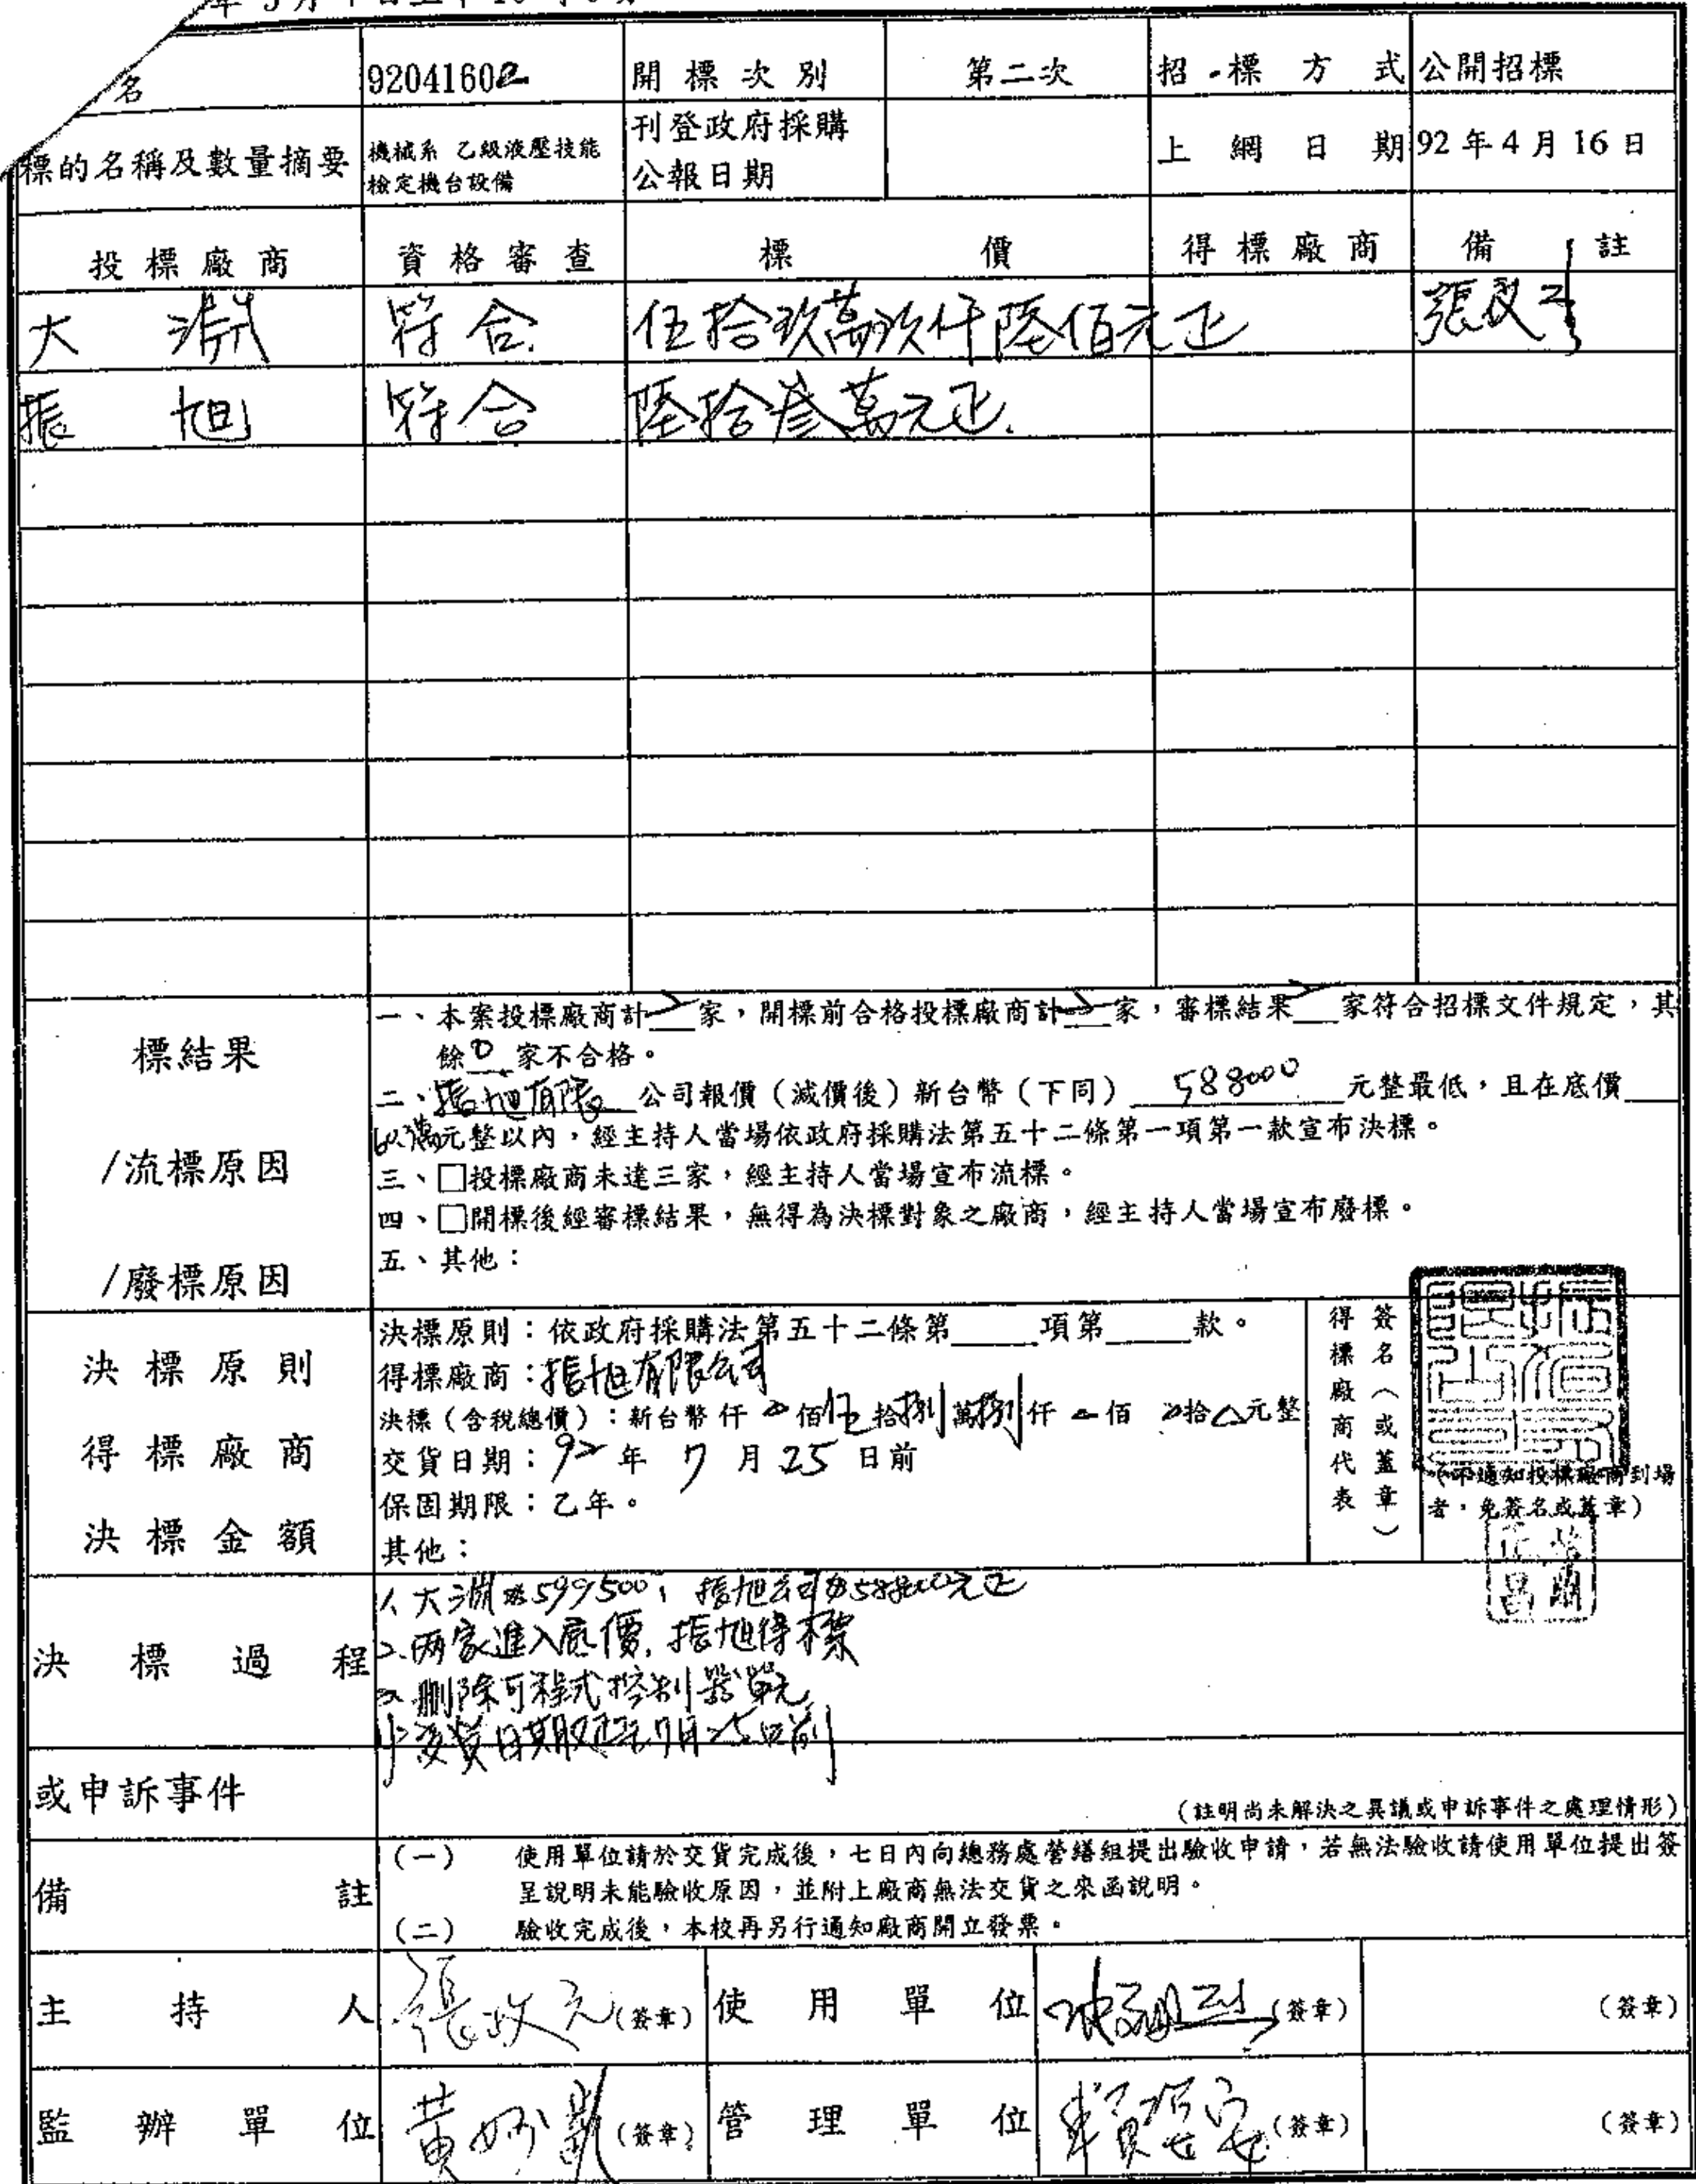 名 92041602 開標次別 第二次 招標方式 公開招標
標的名稱及數量摘要 機械系 乙級液壓技能檢定機台設備 刊登政府採購公報日期 上網日期 92年4月16日
投標廠商 資格審查 標價 得標廠商 備註
大淵 符合 伍拾玖萬玖仟陸佰元正
振旭 符合 陸拾叁萬元正
標結果
/流標原因
/廢標原因
一、本案投標廠商計2家,開標前合格投標廠商計2家,審標結果2家符合招標文件規定,其
餘0家不合格。
二、振旭有限公司報價(減價後)新台幣(下同)588000元整最低,且在底價
60萬元整以內,經主持人當場依政府採購法第五十二條第一項第一款宣布決標。
三、□投標廠商未達三家,經主持人當場宣布流標。
四、□開標後經審標結果,無得為決標對象之廠商,經主持人當場宣布廢標。
五、其他:
決標原則
得標廠商
決標金額
決標原則:依政府採購法第五十二條第___項第___款。
得標廠商:振旭有限公司
決標(含稅總價):新台幣 仟 0佰伍拾捌萬捌仟0佰0拾0元整
交貨日期:92年7月25日前
保固期限:乙年。
其他:
得標廠商代表
簽名(或蓋章)
(不通知投標廠商到場
者,免簽名或蓋章)
決標過程
1. 大淵 599500, 振旭公司 588000元正
2. 兩家進入底價, 振旭得標
3. 刪除可程式控制器單元
4. 交貨日期 7月25日前
或申訴事件
(註明尚未解決之異議或申訴事件之處理情形)
備註
(一) 使用單位請於交貨完成後,七日內向總務處營繕組提出驗收申請,若無法驗收請使用單位提出簽
呈說明未能驗收原因,並附上廠商無法交貨之來函說明。
(二) 驗收完成後,本校再另行通知廠商開立發票。
主持人 張政元(簽章) 使用單位 (簽章) (簽章)
監辦單位 (簽章) 管理單位 (簽章) (簽章)